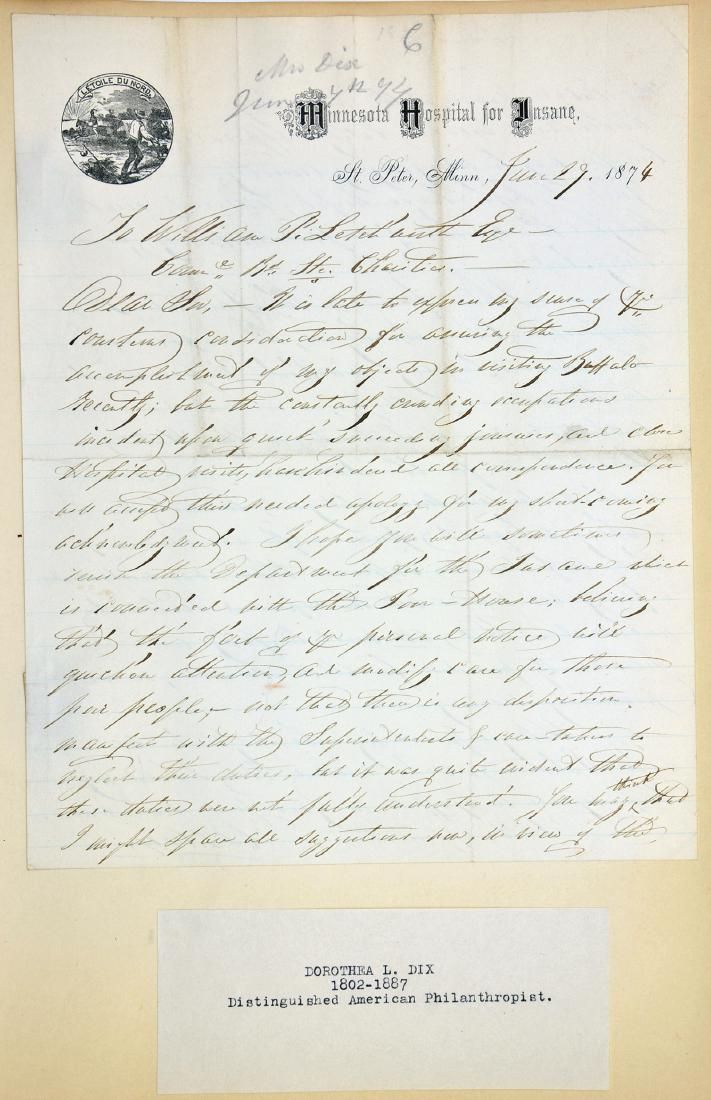 C
Mis Dix
June 7th 74
L'ETOILE DU NORD.
Minnesota Hospital for Insane,
St. Peter, Minn, June 29. 1874
To William P. Letchworth Esqe —
Comr. Bd. Ste. Charities. —
Dear Sir, — It is late to express my sense of yr
courteous consideration for assuring the
accomplishment of my objects in visiting Buffalo
recently; but the constantly crowding occupations
incident upon quick succeeding journeys, and close
Hospital visits, have hindered all correspondence. You
will accept this needed apology for my short-coming
acknowledgment. I hope you will sometimes
visit the Department for the Insane which
is connected with the Poor-House; believing
that the fact of yr personal notice will
quicken attention, and modify care for those
poor people, — not that there is any disposition
manifest with the Superintendents & care-takers to
neglect their duties, but it was quite evident that
these duties were not fully understood. You may think that
I might spare all suggestions now, in view of the
DOROTHEA L. DIX
1802-1887
Distinguished American Philanthropist.